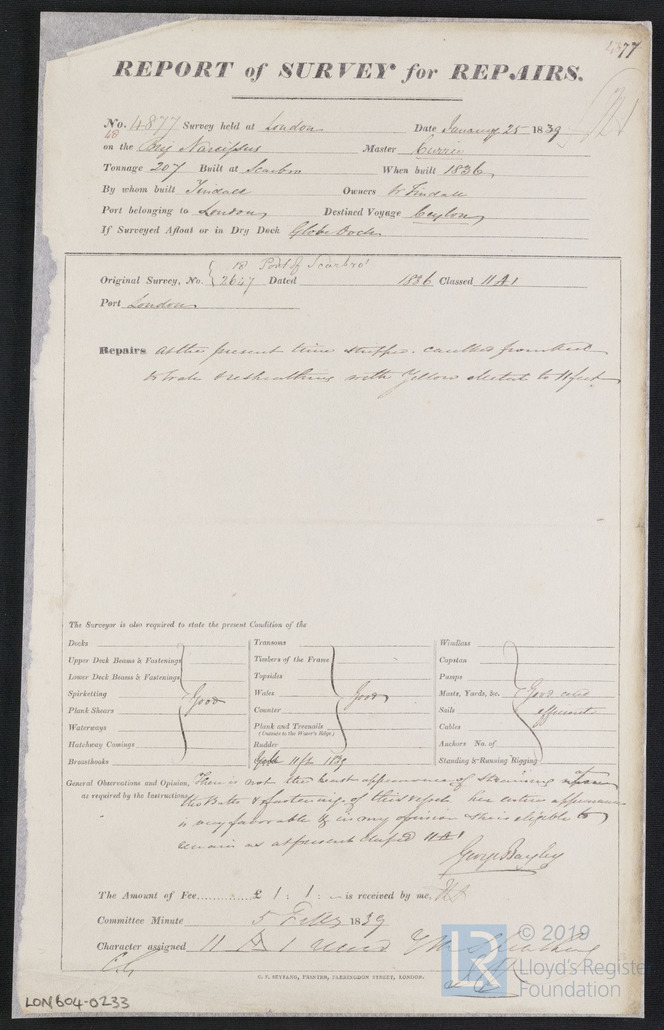 77
REPORT of SURVEY for REPAIRS.
No. 4877 Survey held at London Date January 25 1839
48
on the Brig Narcissus Master Currie
Tonnage 207 Built at Scarbro When built 1836
By whom built Tindall Owners Tindall
Port belonging to London Destined Voyage Ceylon
If Surveyed Afloat or in Dry Dock Globe Dock
18 Port of Scarbro'
Original Survey, No. 2647 Dated 1836 Classed 11 A 1
Port London
Repairs at the present time stripped, caulked from keel
to Wales & resheathing with Yellow Metal to feet
The Surveyor is also required to state the present Condition of the
Decks Transoms Windlass
Upper Deck Beams & Fastenings Timbers of the Frame Capstan
Lower Deck Beams & Fastenings Topsides Pumps
Spirketting Good Wales Good Masts, Yards, &c. Good and
Plank Shears Counter Sails efficient
Waterways Plank and Treenails Cables
(Outside to the Water's Edge)
Hatchway Comings Rudder Anchors No. of
Breasthooks Standing & Running Rigging
General Observations and Opinion, There is not the least appearance of straining upon
as required by the Instructions the Butts & fastenings of this vessel her entire appearance
is very favorable & in my opinion she is eligible to
remain as at present classed 11 A 1
George Bayley
The Amount of Fee £ 1 : 1 : - is received by me,
Committee Minute 5 Feby 1839
Character assigned 11 A 1
C. F. SEYFANG, PRINTER, FARRINGDON STREET, LONDON.
LON604-0233
LR
© 2019
Lloyd's Register
Foundation